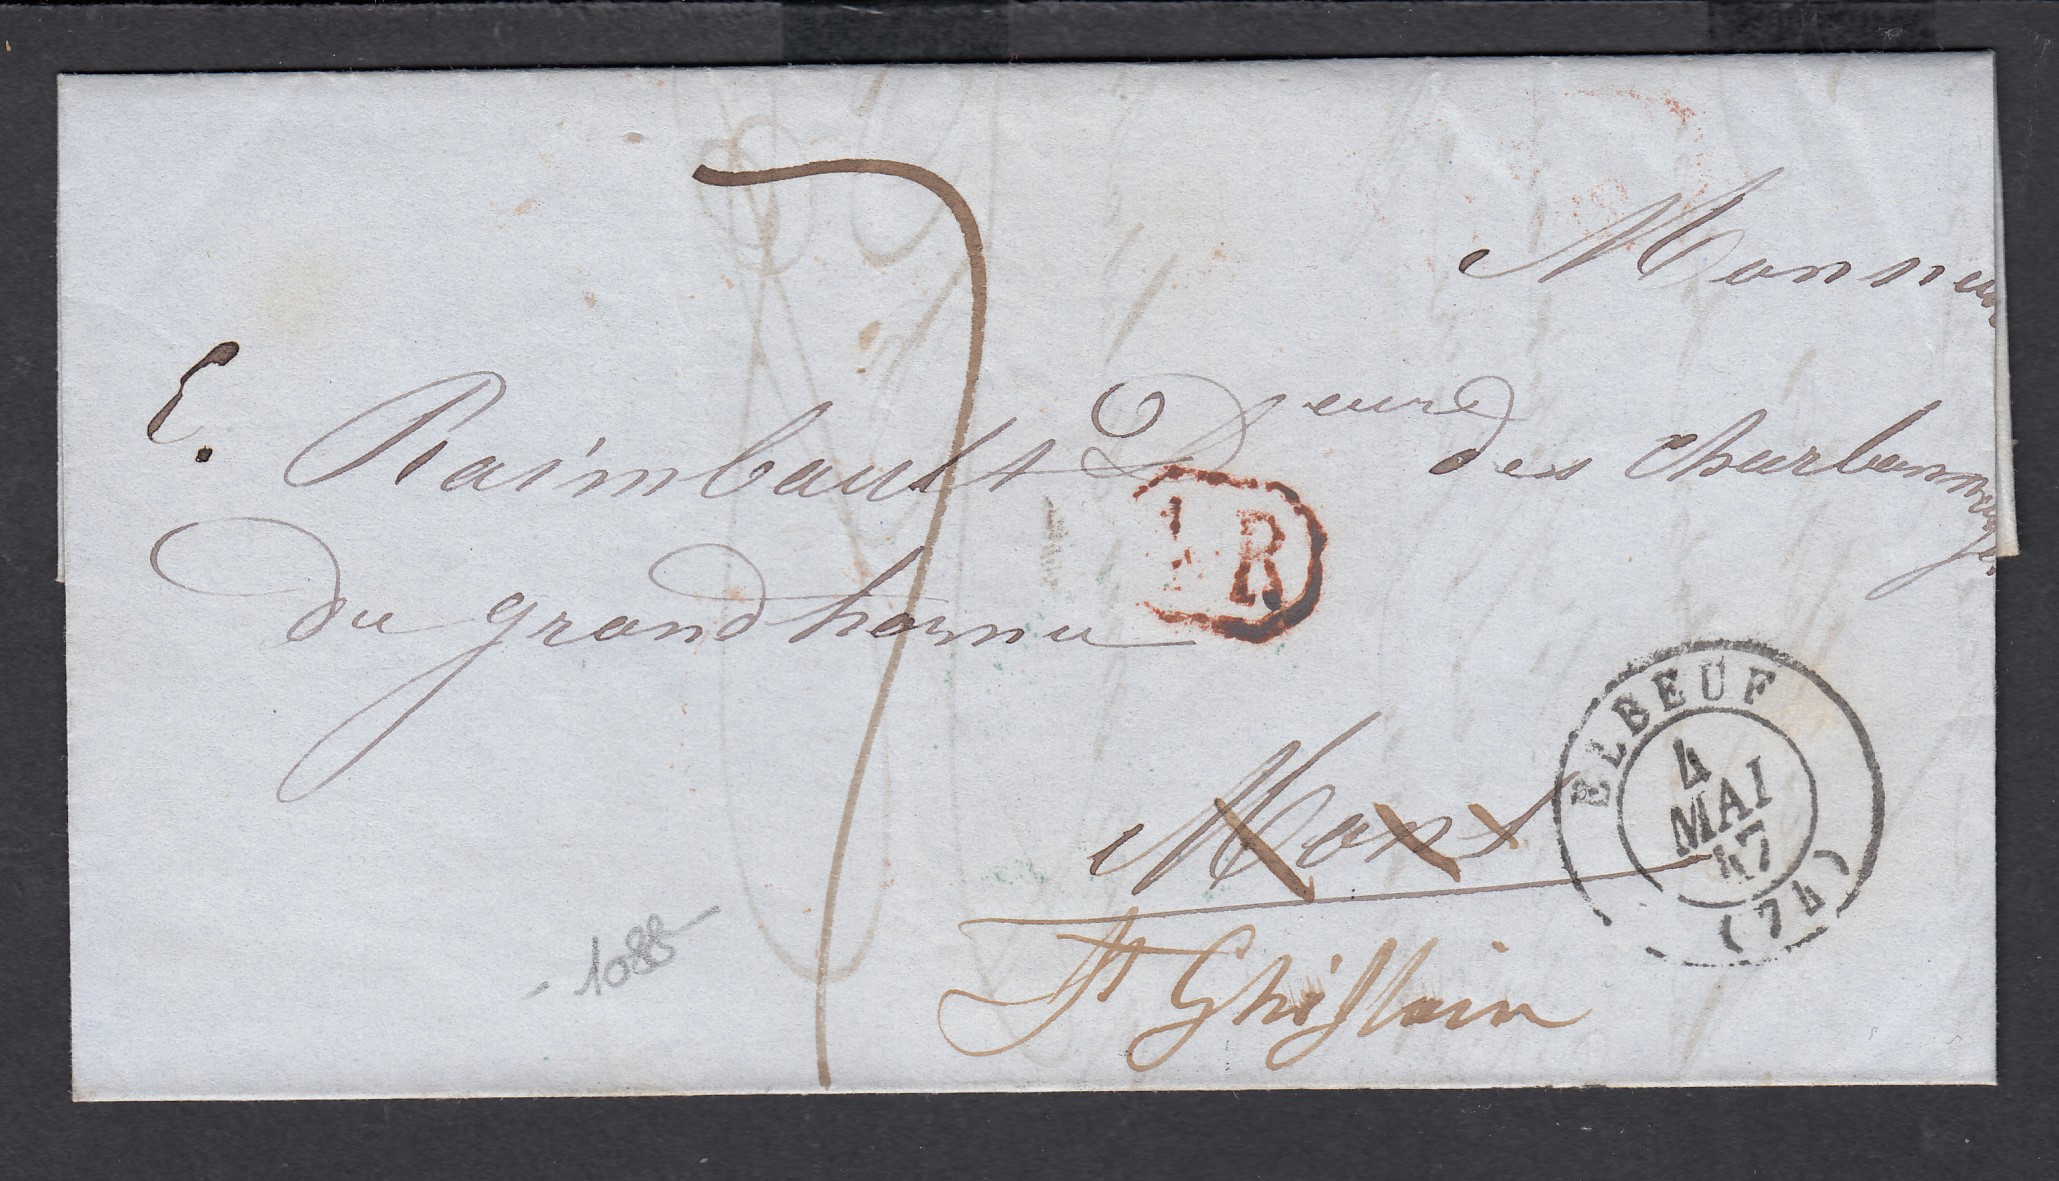 Monsieur
E. Raimbault Deur des charbonnages
du grand hornu
7
1 R
Mons
St Ghislain
ELBEUF
4
MAI
47
(74)
- 1088 -